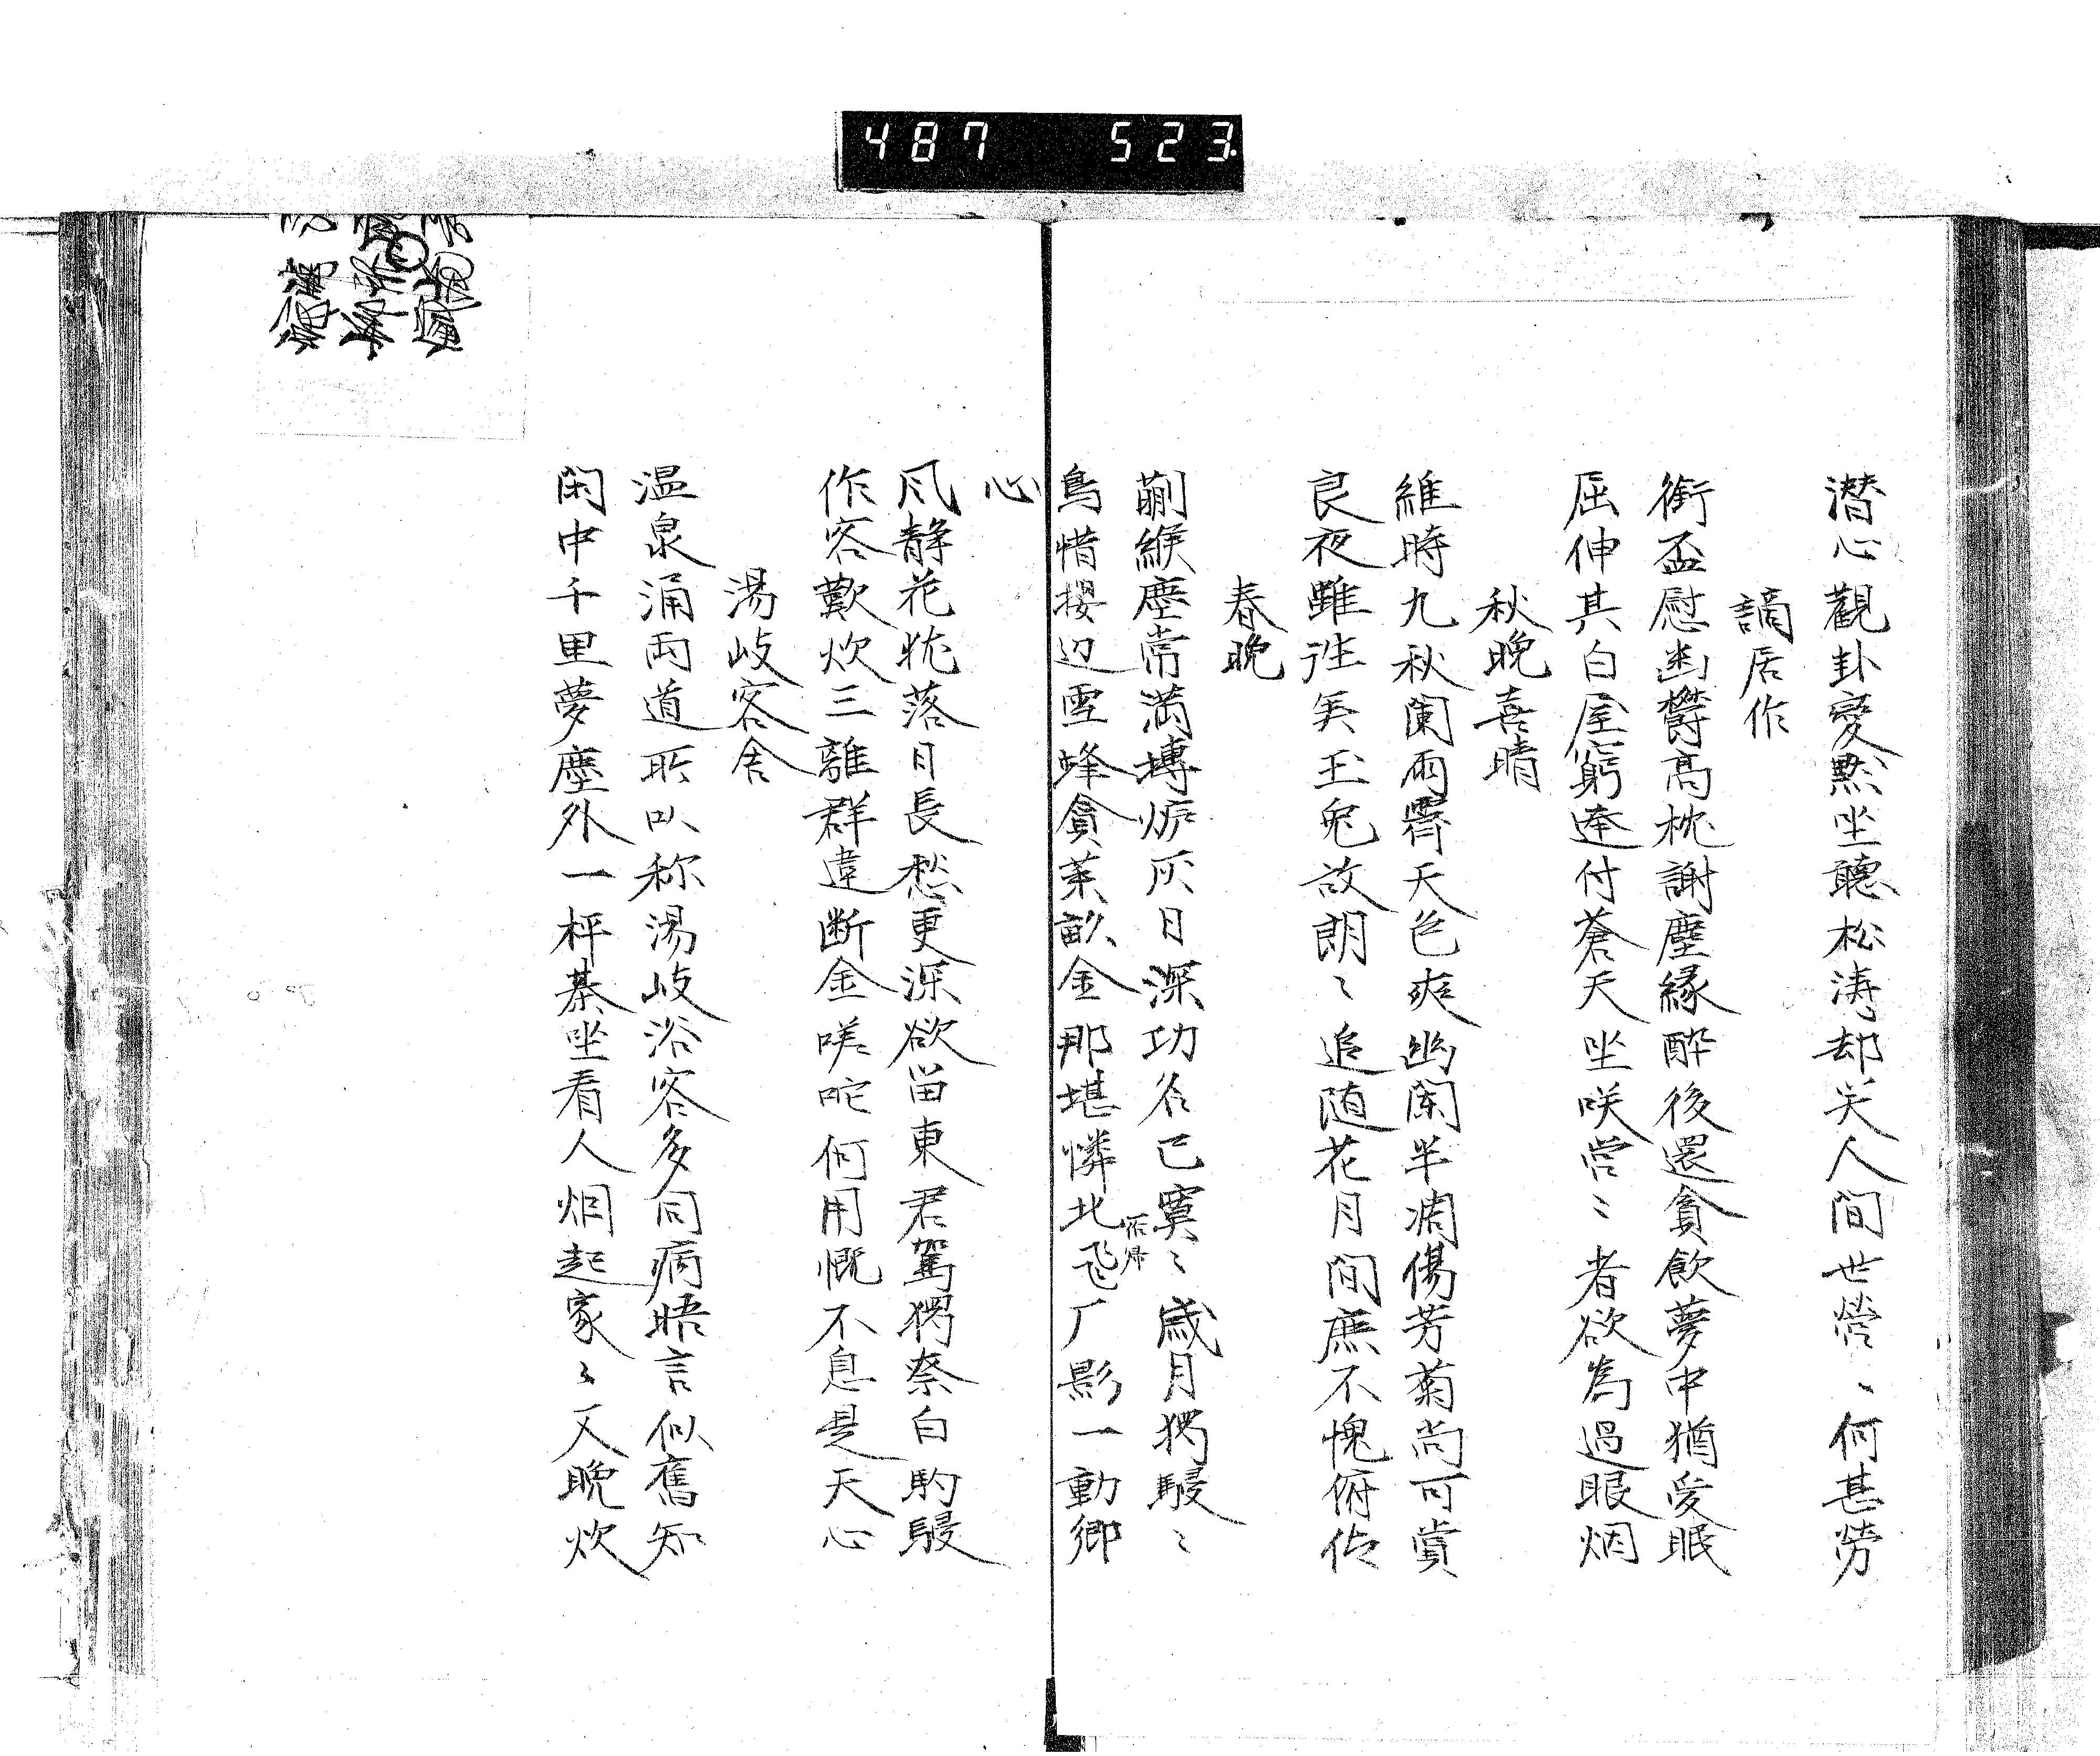 487 523
潜心觀卦変黙坐聽松涛却笑人間世営〻何甚労
謫居作
銜盃慰幽欝高枕謝塵縁酔後還貪飲夢中猶愛眠
屈伸其白屋窮達付蒼天坐咲営〻者欲為過眼烟
秋晚喜晴
維時九秋闌雨霽天色爽幽闌半凋傷芳菊尚可賞
良夜雖徃矣玉兎故朗〻追随花月間庶不愧俯仰
春晚
蒯緱塵常満摶炉灰日深功名已寞〻歳月獨駸〻
鳥惜攖辺雪蜂貪茱畝金那堪憐北飛厂影一動郷
所帰
心
風静花恍落日長愁更深欲留東君駕獨奈白駒駸
作客歎炊三離群違断金嗟咜何用慨不息是天心
湯岐客舎
温泉涌両道所以称湯岐浴客多同病晤言似舊知
閑中千里夢塵外一枰棊坐看人烟起家〻又晚炊